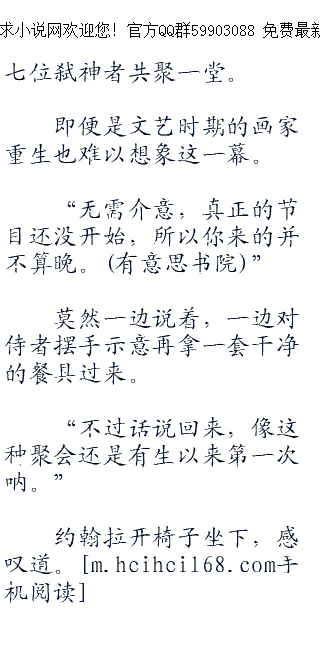 求小说网欢迎您! 官方QQ群59903088 免费最新
七位弑神者共聚一堂。
即便是文艺时期的画家
重生也难以想象这一幕。
“无需介意，真正的节
目还没开始，所以你来的并
不算晚。(有意思书院)”
莫然一边说着，一边对
侍者摆手示意再拿一套干净
的餐具过来。
“不过话说回来，像这
种聚会还是有生以来第一次
呐。”
约翰拉开椅子坐下，感
叹道。[m.hcihcil68.com手
机阅读]